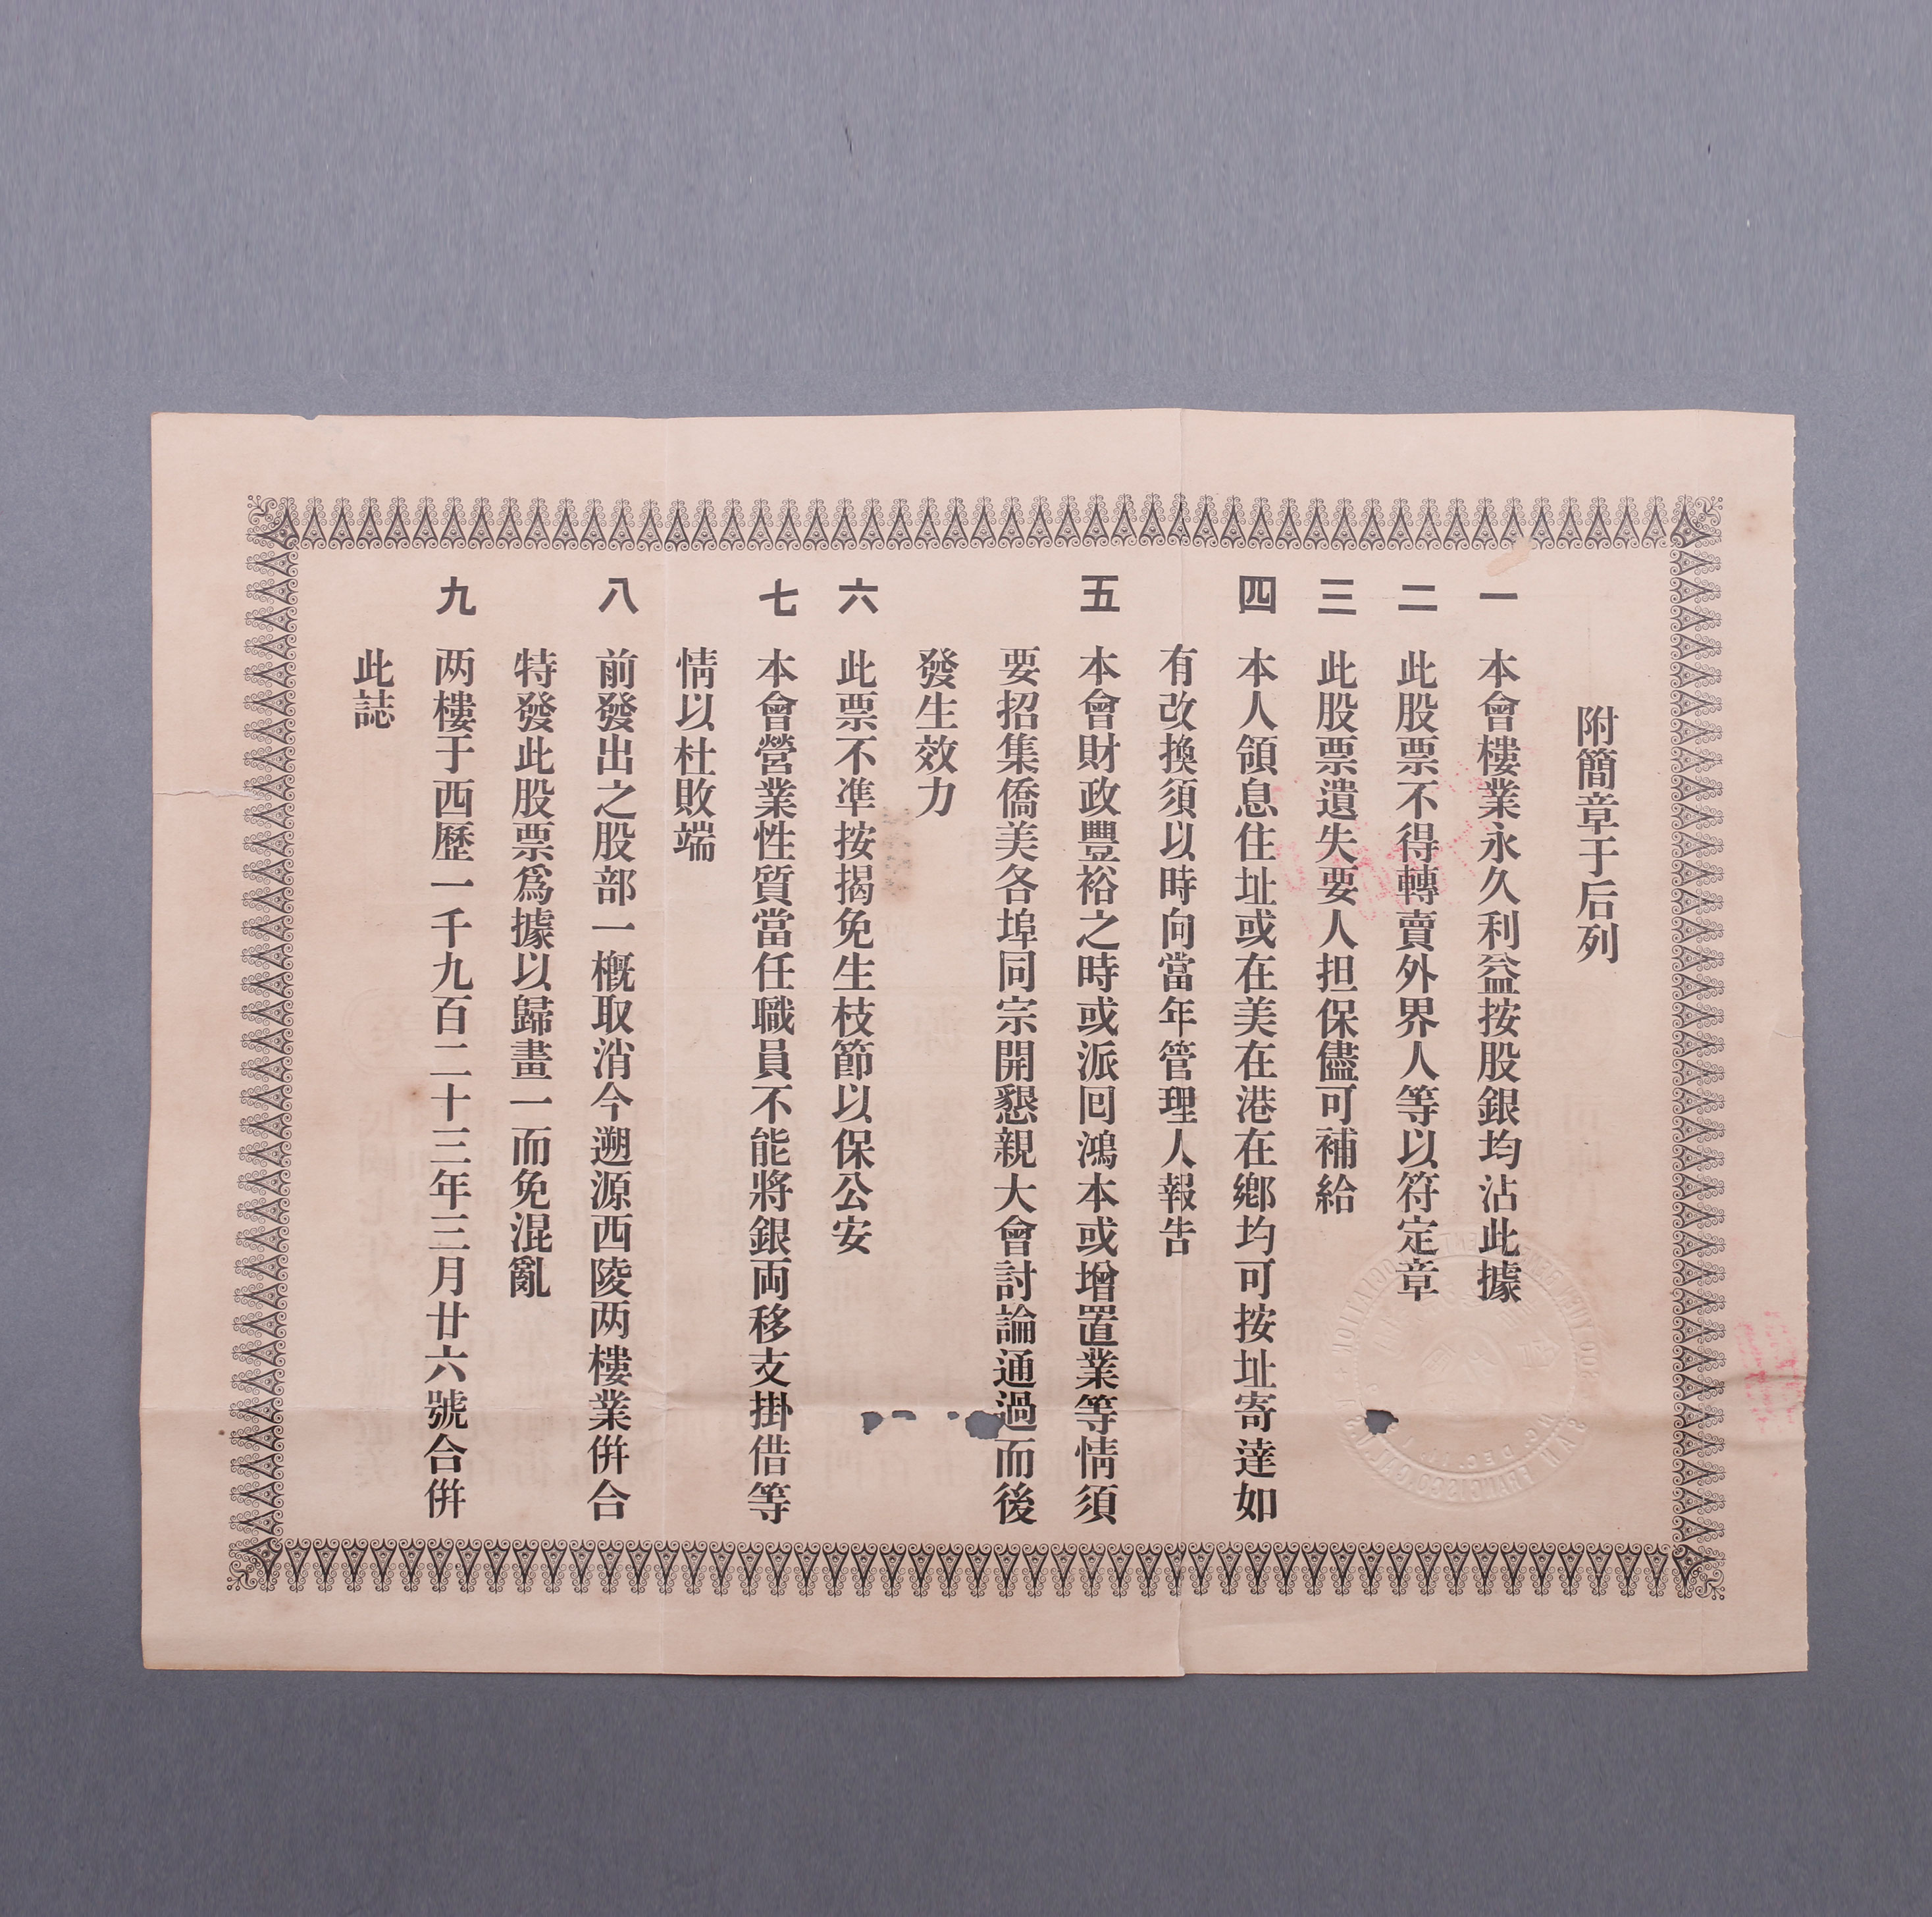 附簡章于后列
一 本會樓業永久利益按股銀均沾此據
二 此股票不得轉賣外界人等以符定章
三 此股票遺失要人担保儘可補給
四 本人領息住址或在美在港在鄉均可按址寄達如
有改換須以時向當年管理人報告
五 本會財政豐裕之時或派囘鴻本或增置業等情須
要招集僑美各埠同宗開懇親大會討論通過而後
發生效力
六 此票不準按揭免生枝節以保公安
七 本會營業性質當任職員不能將銀両移支掛借等
情以杜敗端
八 前發出之股部一概取消今遡源西陵两樓業併合
特發此股票爲據以歸畫一而免混亂
九 两樓于西歷一千九百二十三年三月廿六號合併
此誌
SAN FRANCISCO, CAL.
DEC.